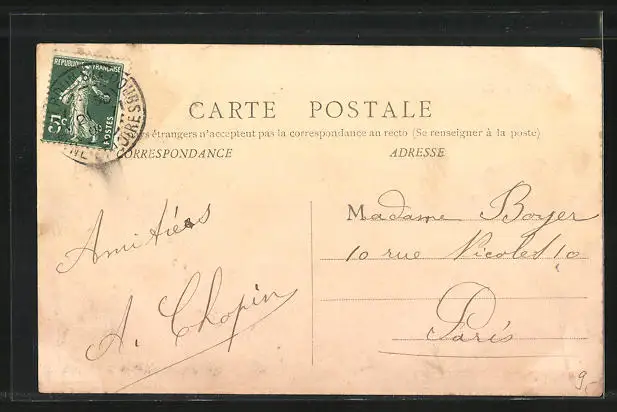 REPUBLIQUE FRANÇAISE
POSTES
5c
CARTE POSTALE
étrangers n'acceptent pas la correspondance au recto (Se renseigner à la poste)
CORRESPONDANCE
ADRESSE
Amitiés
A. Chopin
Madame Boyer
10 rue Nicolet 10
Paris
9,-